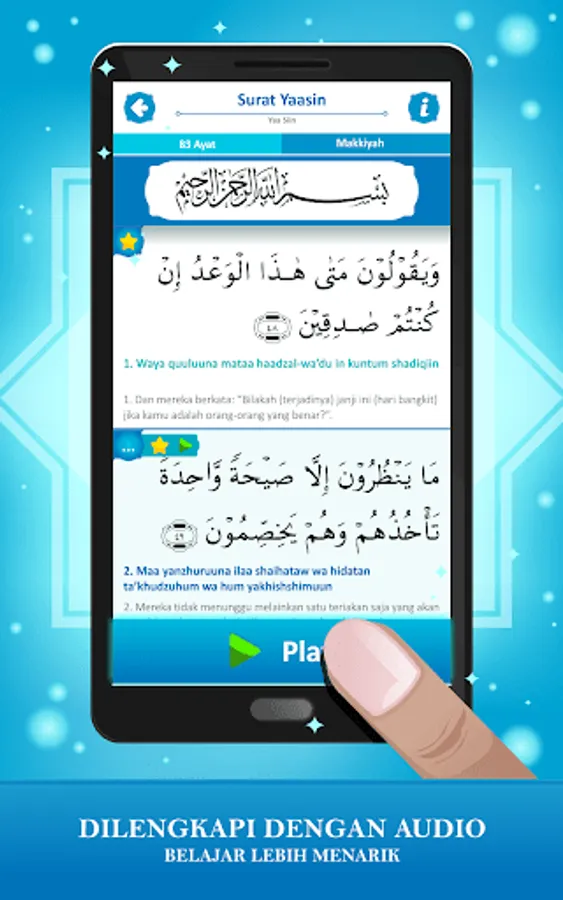 Surat Yaasin
Yaa Siin
83 Ayat
Makkiyah
بِسْمِ اللَّهِ الرَّحْمَٰنِ الرَّحِيمِ
وَيَقُوْلُوْنَ مَتٰى هٰذَا الْوَعْدُ اِنْ
كُنْتُمْ صٰدِقِيْنَ ٤٨
1. Waya quuluuna mataa haadzal-wa'du in kuntum shadiqiin
1. Dan mereka berkata: "Bilakah (terjadinya) janji ini (hari bangkit)
jika kamu adalah orang-orang yang benar?".
...
مَا يَنْظُرُوْنَ اِلَّا صَيْحَةً وَّاحِدَةً
تَأْخُذُهُمْ وَهُمْ يَخِصِّمُوْنَ ٤٩
2. Maa yanzhuruuna ilaa shaihataw wa hidatan
ta'khudzuhum wa hum yakhishshimuun
2. Mereka tidak menunggu melainkan satu teriakan saja yang akan
Pla
DILENGKAPI DENGAN AUDIO
BELAJAR LEBIH MENARIK